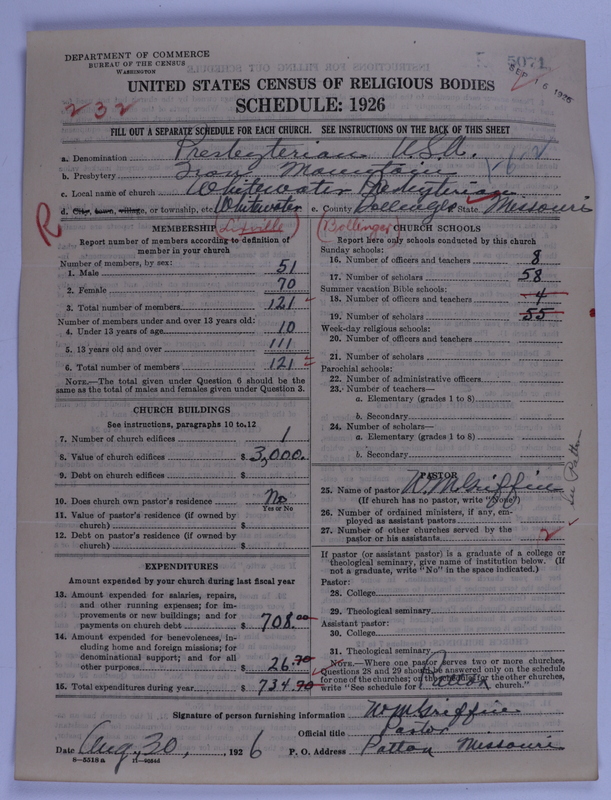 DEPARTMENT OF COMMERCE
BUREAU OF THE CENSUS
WASHINGTON
5071
SEP 16 1926
UNITED STATES CENSUS OF RELIGIOUS BODIES
232
SCHEDULE: 1926
FILL OUT A SEPARATE SCHEDULE FOR EACH CHURCH. SEE INSTRUCTIONS ON THE BACK OF THIS SHEET
a. Denomination Presbyterian U.S.A.
b. Presbytery Iron Mountain
c. Local name of church Whitewater Presbyterian
d. City, town, village, or township, etc. Whitewater e. County Bollinger State Missouri
R
MEMBERSHIP (Lixville) (Bollinger) CHURCH SCHOOLS
Report number of members according to definition of member in your church
Number of members, by sex:
1. Male 51
2. Female 70
3. Total number of members 121
Number of members under and over 13 years old:
4. Under 13 years of age 10
5. 13 years old and over 111
6. Total number of members 121
NOTE.—The total given under Question 6 should be the same as the total of males and females given under Question 3.
CHURCH BUILDINGS
See instructions, paragraphs 10 to 12
7. Number of church edifices 1
8. Value of church edifices $ 3,000.
9. Debt on church edifices $
10. Does church own pastor's residence No
Yes or No
11. Value of pastor's residence (if owned by church) $
12. Debt on pastor's residence (if owned by church) $
EXPENDITURES
Amount expended by your church during last fiscal year
13. Amount expended for salaries, repairs, and other running expenses; for improvements or new buildings; and for payments on church debt $ 708.00
14. Amount expended for benevolences, including home and foreign missions; for denominational support; and for all other purposes $ 26.70
15. Total expenditures during year $ 734.90
Report here only schools conducted by this church
Sunday schools:
16. Number of officers and teachers 8
17. Number of scholars 58
Summer vacation Bible schools:
18. Number of officers and teachers 4
19. Number of scholars 55
Week-day religious schools:
20. Number of officers and teachers
21. Number of scholars
Parochial schools:
22. Number of administrative officers
23. Number of teachers—
a. Elementary (grades 1 to 8)
b. Secondary
24. Number of scholars—
a. Elementary (grades 1 to 8)
b. Secondary
PASTOR
25. Name of pastor W.M. Griffin
(If church has no pastor, write "None")
See Patton
26. Number of ordained ministers, if any, employed as assistant pastors
27. Number of other churches served by the pastor or his assistants 2
If pastor (or assistant pastor) is a graduate of a college or theological seminary, give name of institution below. (If not a graduate, write "No" in the space indicated.)
Pastor:
28. College
29. Theological seminary
Assistant pastor:
30. College
31. Theological seminary
NOTE.—Where one pastor serves two or more churches, Questions 28 and 29 should be answered only on the schedule for one of the churches; on the schedule for the other churches, write "See schedule for Patton church."
Signature of person furnishing information W.M. Griffin
Official title Pastor
Date Aug, 30, 1926 P. O. Address Patton Missouri
8—5518 a